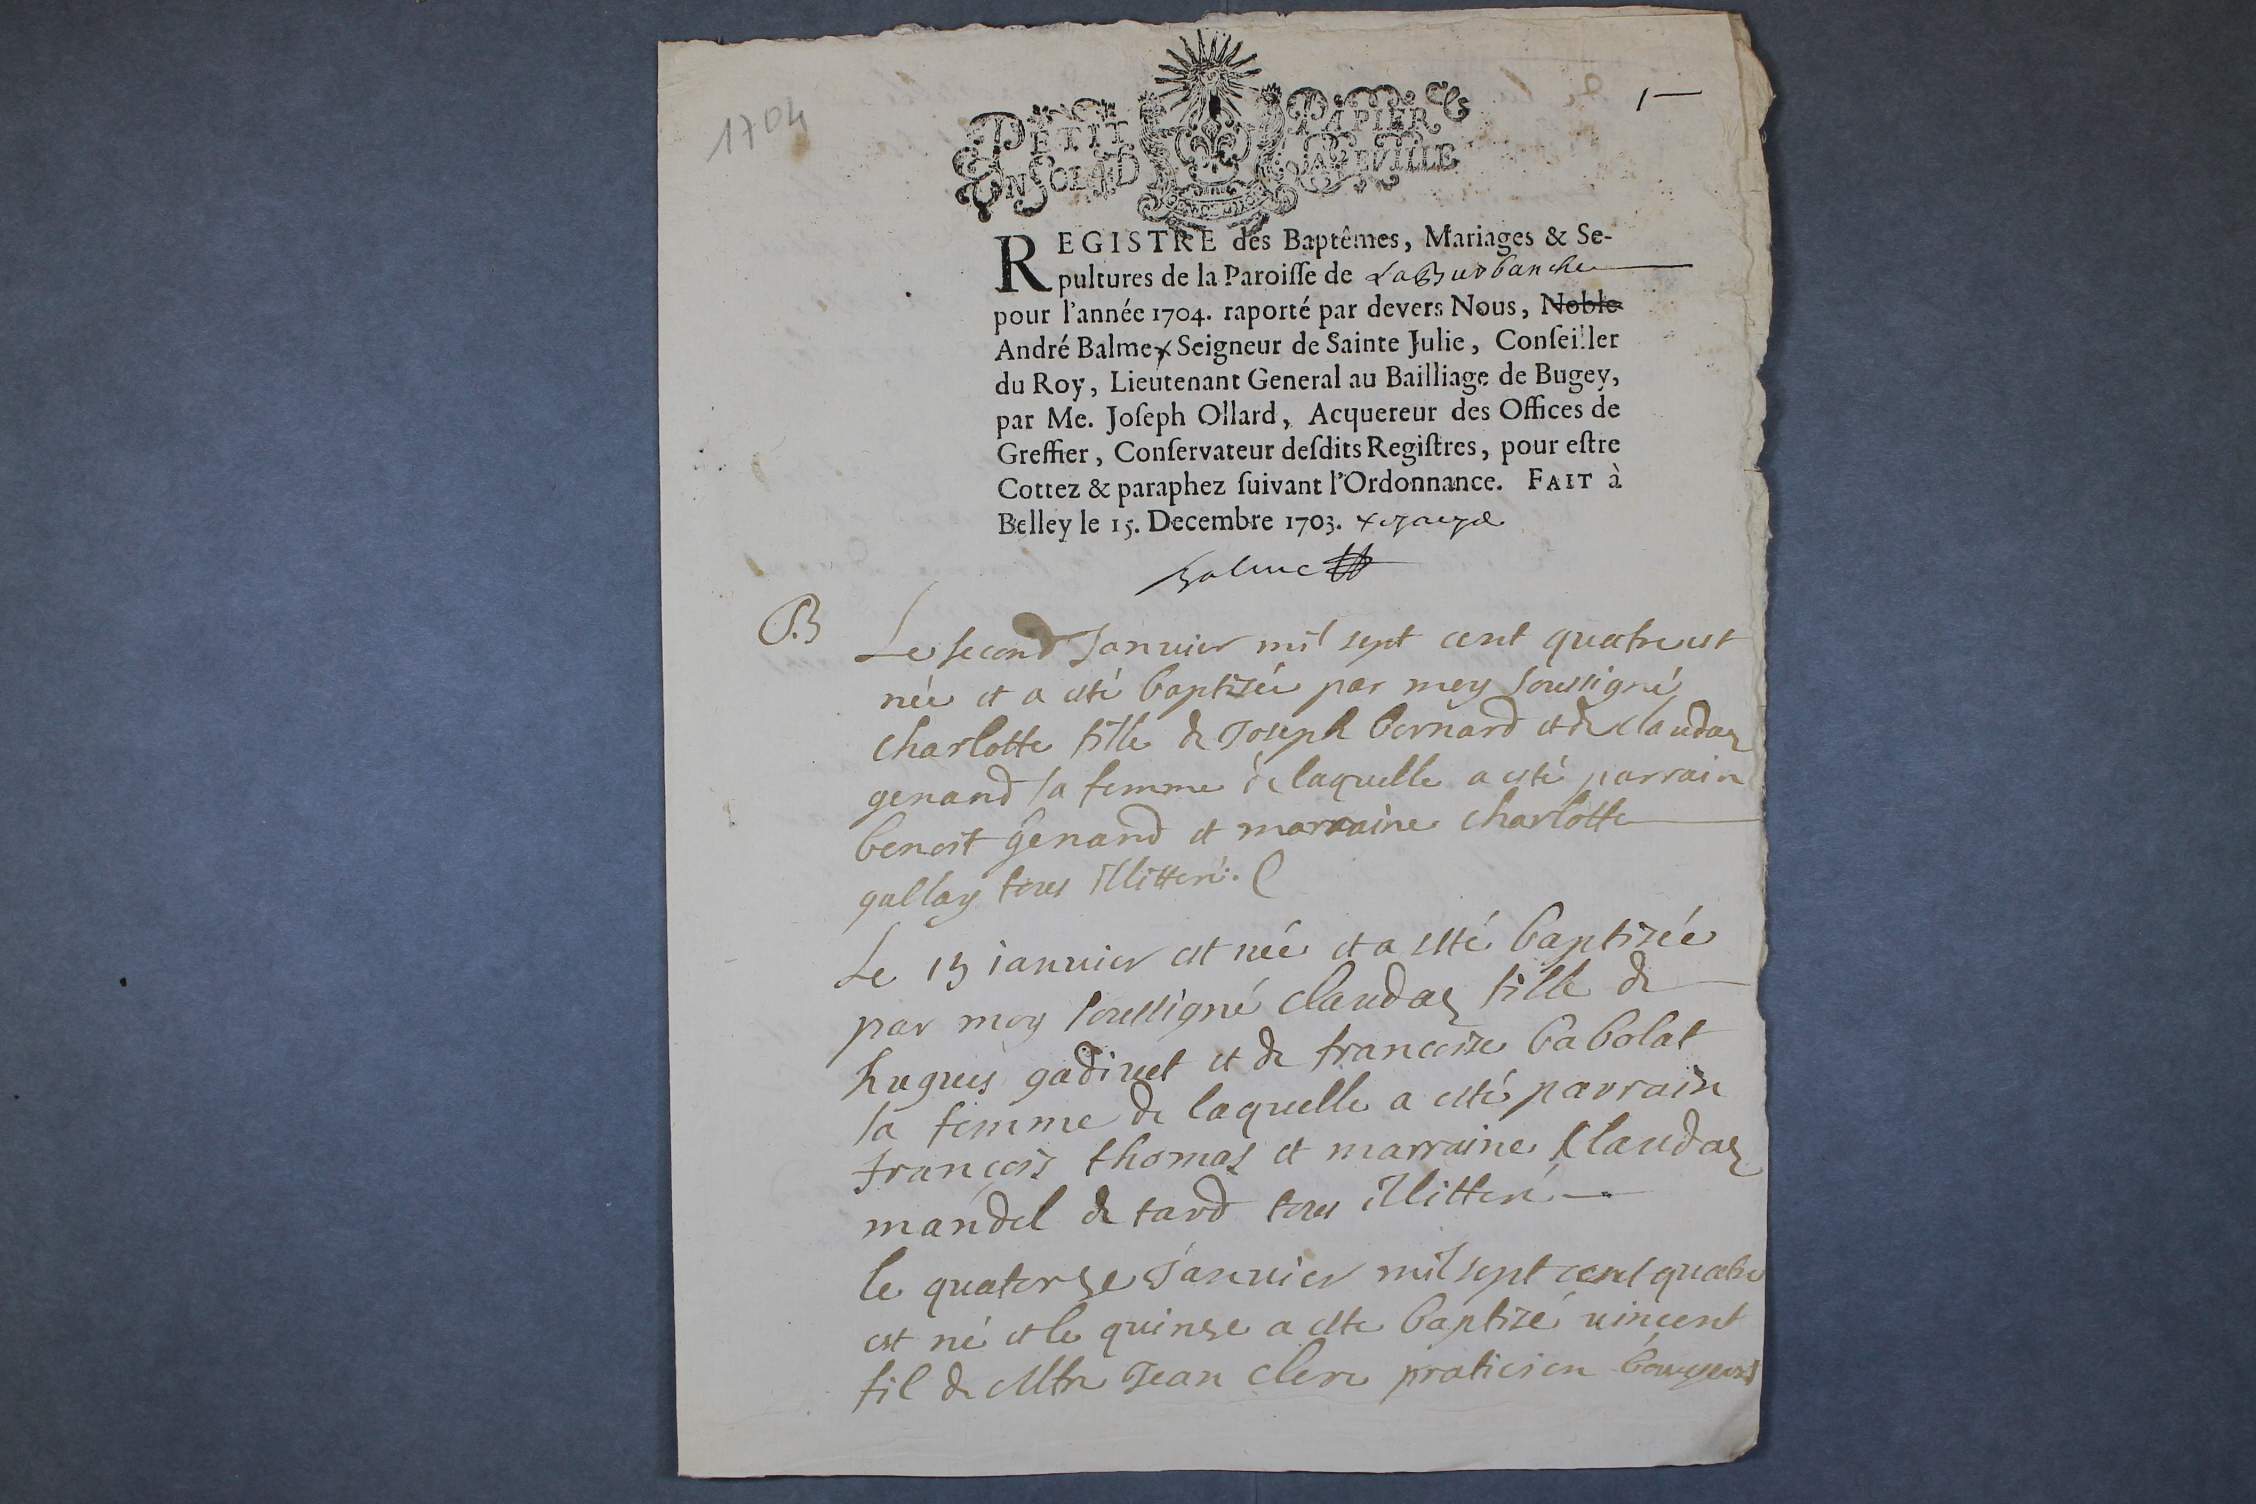 1704
PETIT PAPIER
UN SOL 4 D LA FEVILLE
1
REGISTRE des Baptêmes, Mariages & Se-
pultures de la Paroisse de La Burbanche
pour l'année 1704. raporté par devers Nous, Noble
André Balme x Seigneur de Sainte Julie, Conseiller
du Roy, Lieutenant General au Bailliage de Bugey,
par Me. Joseph Ollard, Acquereur des Offices de
Greffier, Conservateur desdits Registres, pour estre
Cottez & paraphez suivant l'Ordonnance. FAIT à
Belley le 15. Decembre 1703. x
Balme
B
Le second Janvier mil sept cent quatre est
née et a esté baptizée par moy soussigné
charlotte fille de Joseph bernard et de claudaz
genand sa femme de laquelle a esté parrain
benoit genand et marraine charlotte
gallay tous illitteré.
Le 13 ianvier est née et a esté baptizée
par moy soussigné claudaz fille de
hugues gadivet et de francoise babolat
sa femme de laquelle a esté parrain
françois thomas et marraine Claudaz
mandel de tard tous illitteré
le quatorze Janvier mil sept cent quatre
est né et le quinze a este baptizé vincent
fil de Mtre Jean clerc praticien bourgeois